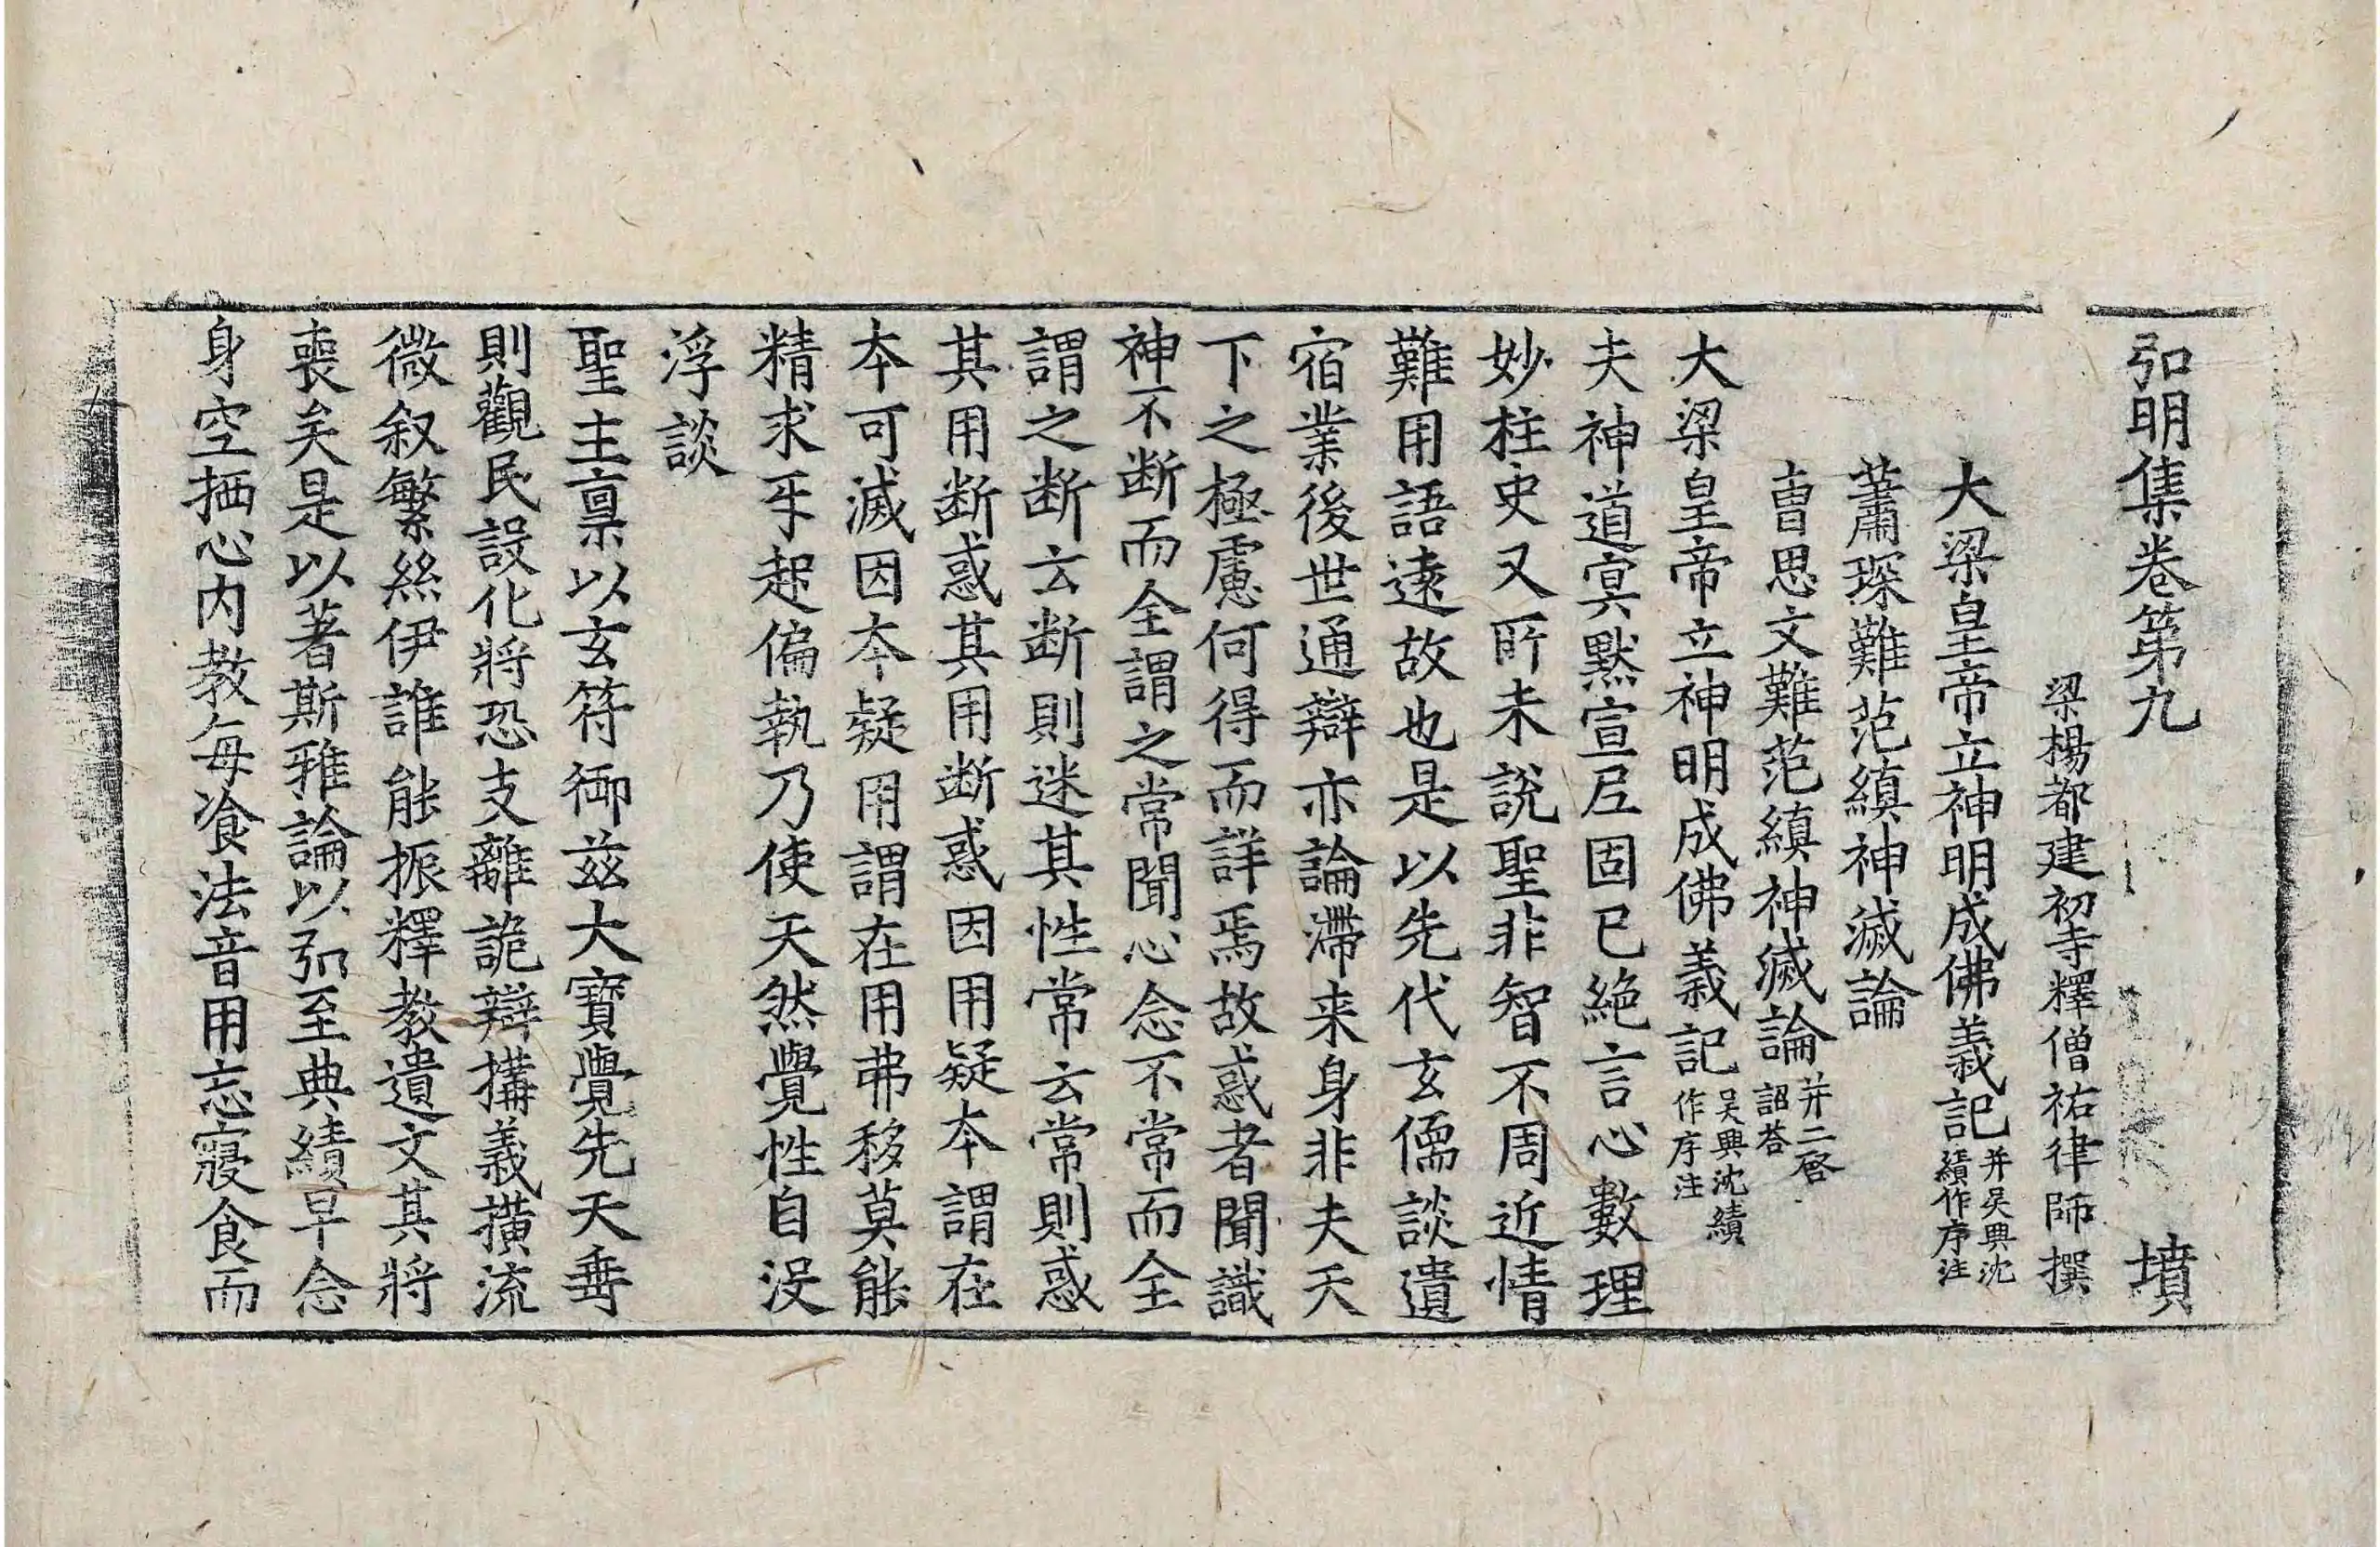 弘明集卷第九 墳
梁楊都建初寺釋僧祐律師撰
大梁皇帝立神明成佛義記并吳興沈績作序注
蕭琛難范縝神滅論
曺思文難范縝神滅論并二啓詔荅
大梁皇帝立神明成佛義記吳興沈績作序注
夫神道冥默宣尼固已絶言心數理
妙柱史又所未說聖非智不周近情
難用語遠故也是以先代玄儒談遺
宿業後世通辯亦論滯来身非夫天
下之極慮何得而詳焉故惑者聞識
神不断而全謂之常聞心念不常而全
謂之断云断則迷其性常云常則惑
其用断惑其用断惑因用疑本謂在
本可滅因本疑用謂在用弗移莫能
精求乎起偏執乃使天然覺性自没
浮談
聖主禀以玄符御兹大寶覺先天垂
則觀民設化將恐支離詭辯搆義横流
微叙繁絲伊誰能振釋教遺文其將
喪矣是以著斯雅論以弘至典績早念
身空栖心内教每飡法音用忘寢食而